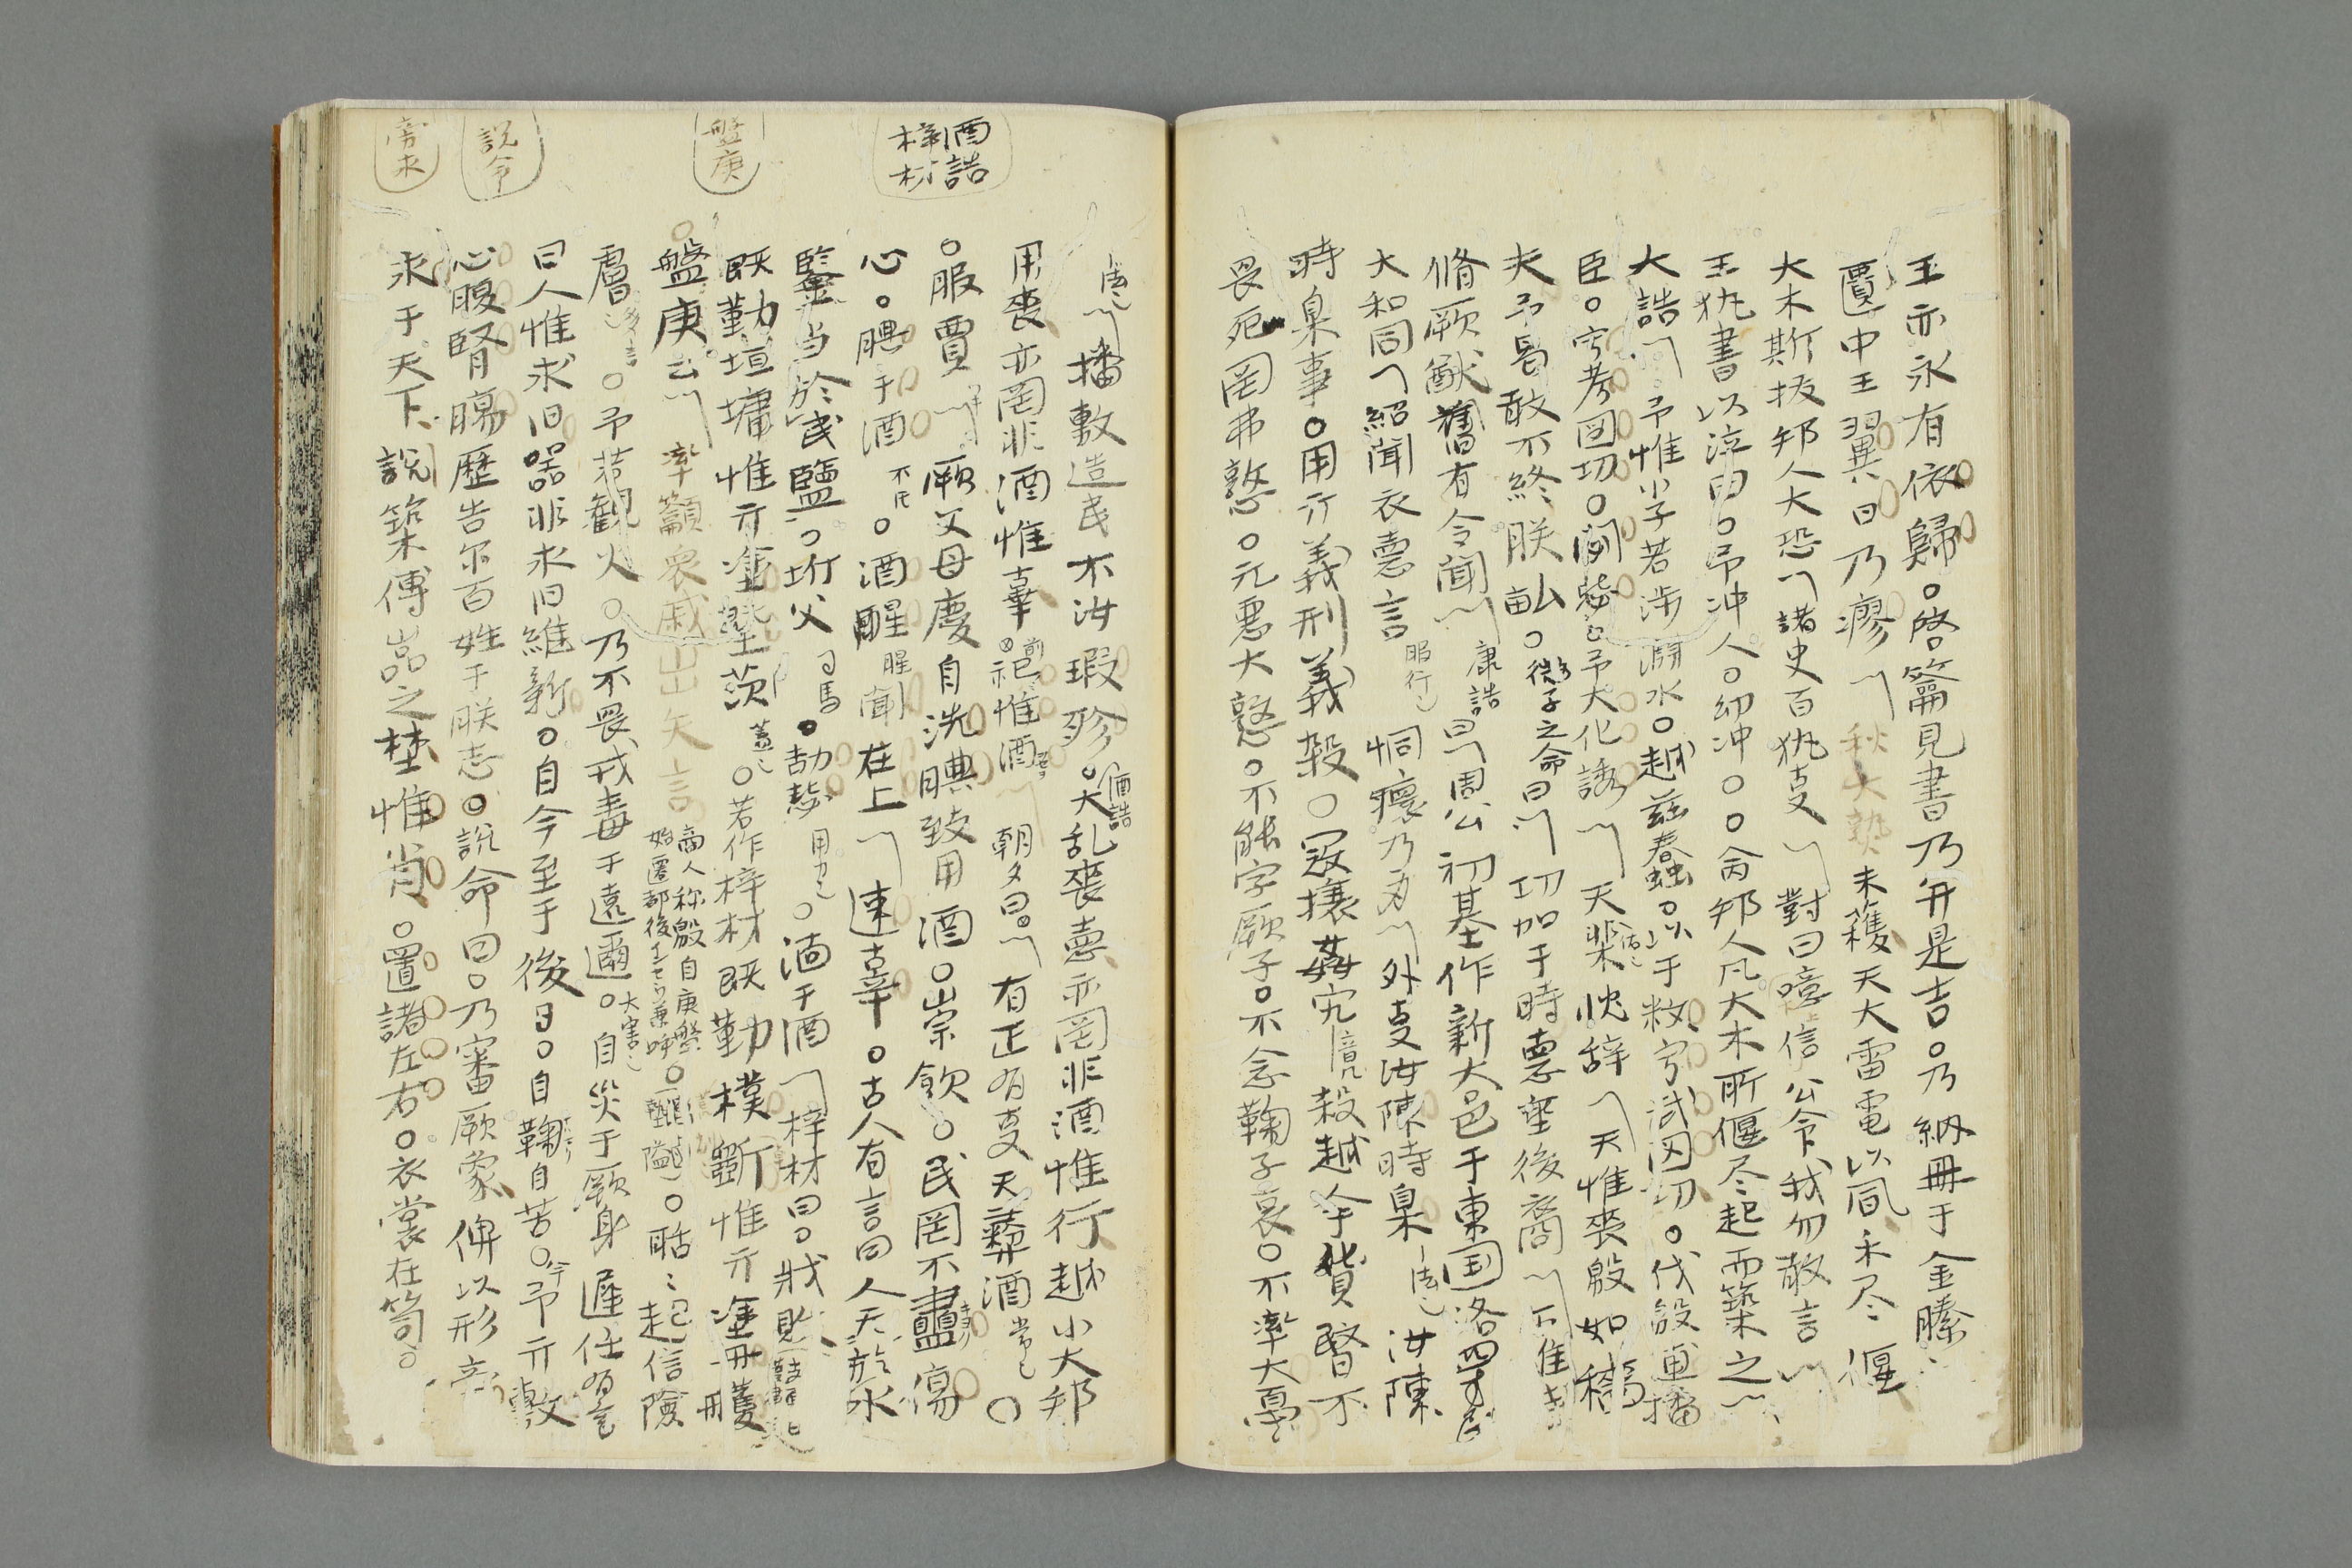 王亦永有依歸○啓籥見書乃并是吉○乃納冊于金縢
匱中王翼日乃瘳秋大熟未穫天大雷電以風禾尽偃
大木斯拔邦人大恐諸史百执事對曰噫信公命我勿敢言
王执書以泣曰○予冲人○幼冲○○命邦人凡大木所偃尽起而築之
大誥予惟小子若涉淵水○越茲蠢○以于敉寧武図功○伐殷逋播
臣○寧考図功○閟毖○予大化誘天棐忱辞天惟喪殷如穡
夫予曷敢不終朕畝○微子之命曰功加于時徳垂後裔
脩厥猷舊有令聞康誥曰周公初基作新大邑于東国洛四方民
大和同紹聞衣徳言服行恫瘝乃身外事汝陳時臬汝陳
時臬事○用其義刑義殺○寇攘姦宄殺越人于貨暋不
畏死罔弗憝○元悪大憝○不能字厥子○不念鞠子哀○不率大戛
播敷造民不汝瑕殄○酒誥大乱喪徳亦罔非酒惟行越小大邦
用喪亦罔非酒惟辜祀惟酒朝夕曰有正有事无彝酒常
○服賈厥父母慶自洗腆致用酒○崇飲○民罔不衋傷
心○腆于酒○酒腥聞在上速辜○古人有言曰人无於水
鑒当於民監○圻父司馬○劼毖用力○湎于酒梓材曰○戕敗
既勤垣墉惟其塗塈茨○若作梓材既勤樸斲惟其塗丹雘
○盤庚云率籲衆慼出矢言商人称殷自庚盤始遷都後○聒聒起信險
膚○予若観火○乃不畏戎毒于遠邇大害○自災于厥身遅任有言
曰人惟求旧器非求旧維新○自今至于後日○自鞠自苦○今予其敷
心腹腎腸歴告尓百姓于朕志○説命曰○乃審厥象俾以形旁
求于天下説築傅巌之埜惟肖○置諸左右○衣裳在笥○
酒誥
梓材
盤庚
説命
旁求